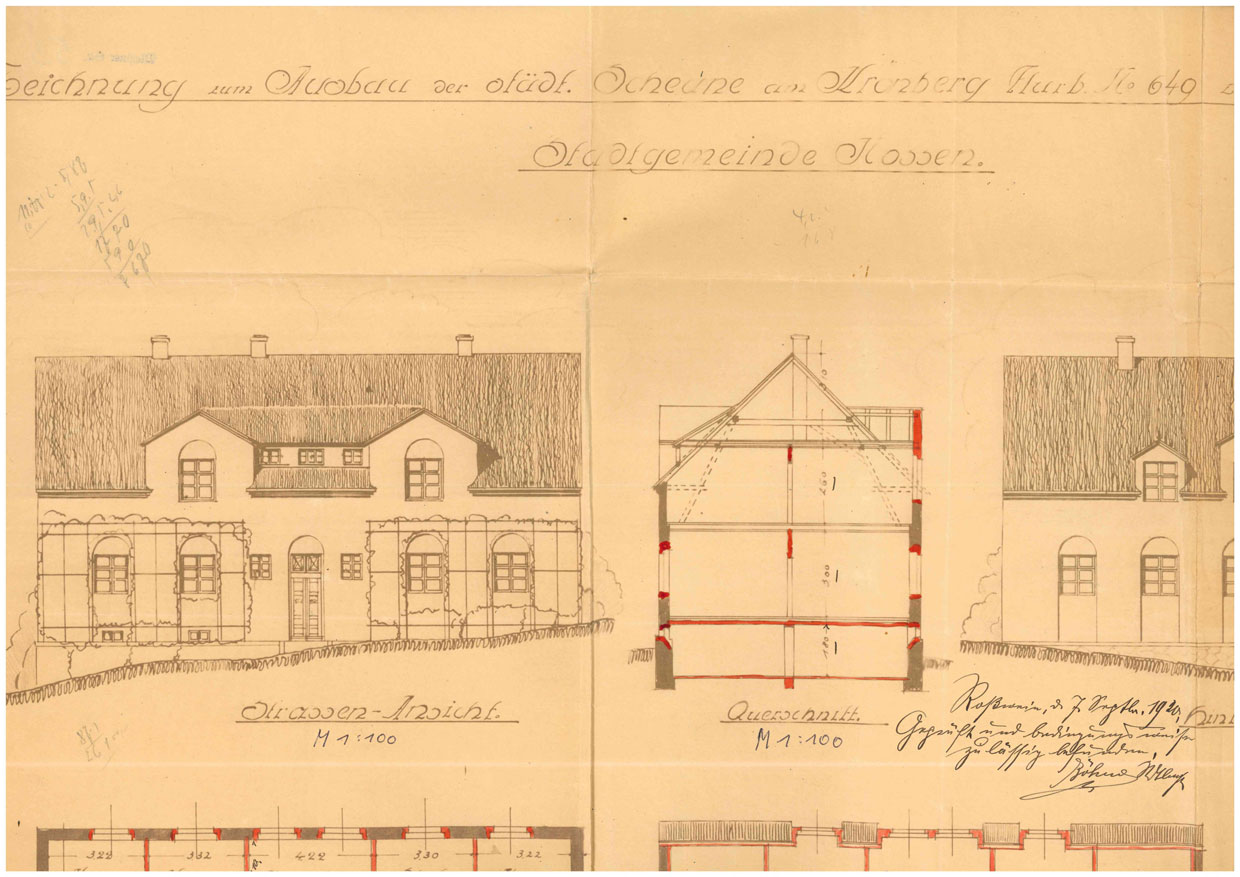 Zeichnung zum Ausbau der städt. Scheune am Kronberg Flurb. No 649
Stadtgemeinde Nossen.
310
260
300
180
Strassen-Ansicht.
M 1:100
Querschnitt.
M 1:100
Roßwein, d. 7. Septbr. 1920.
Geprüft und bedingungsweise
zulässig befunden.
Böhme
322
332
422
330
322